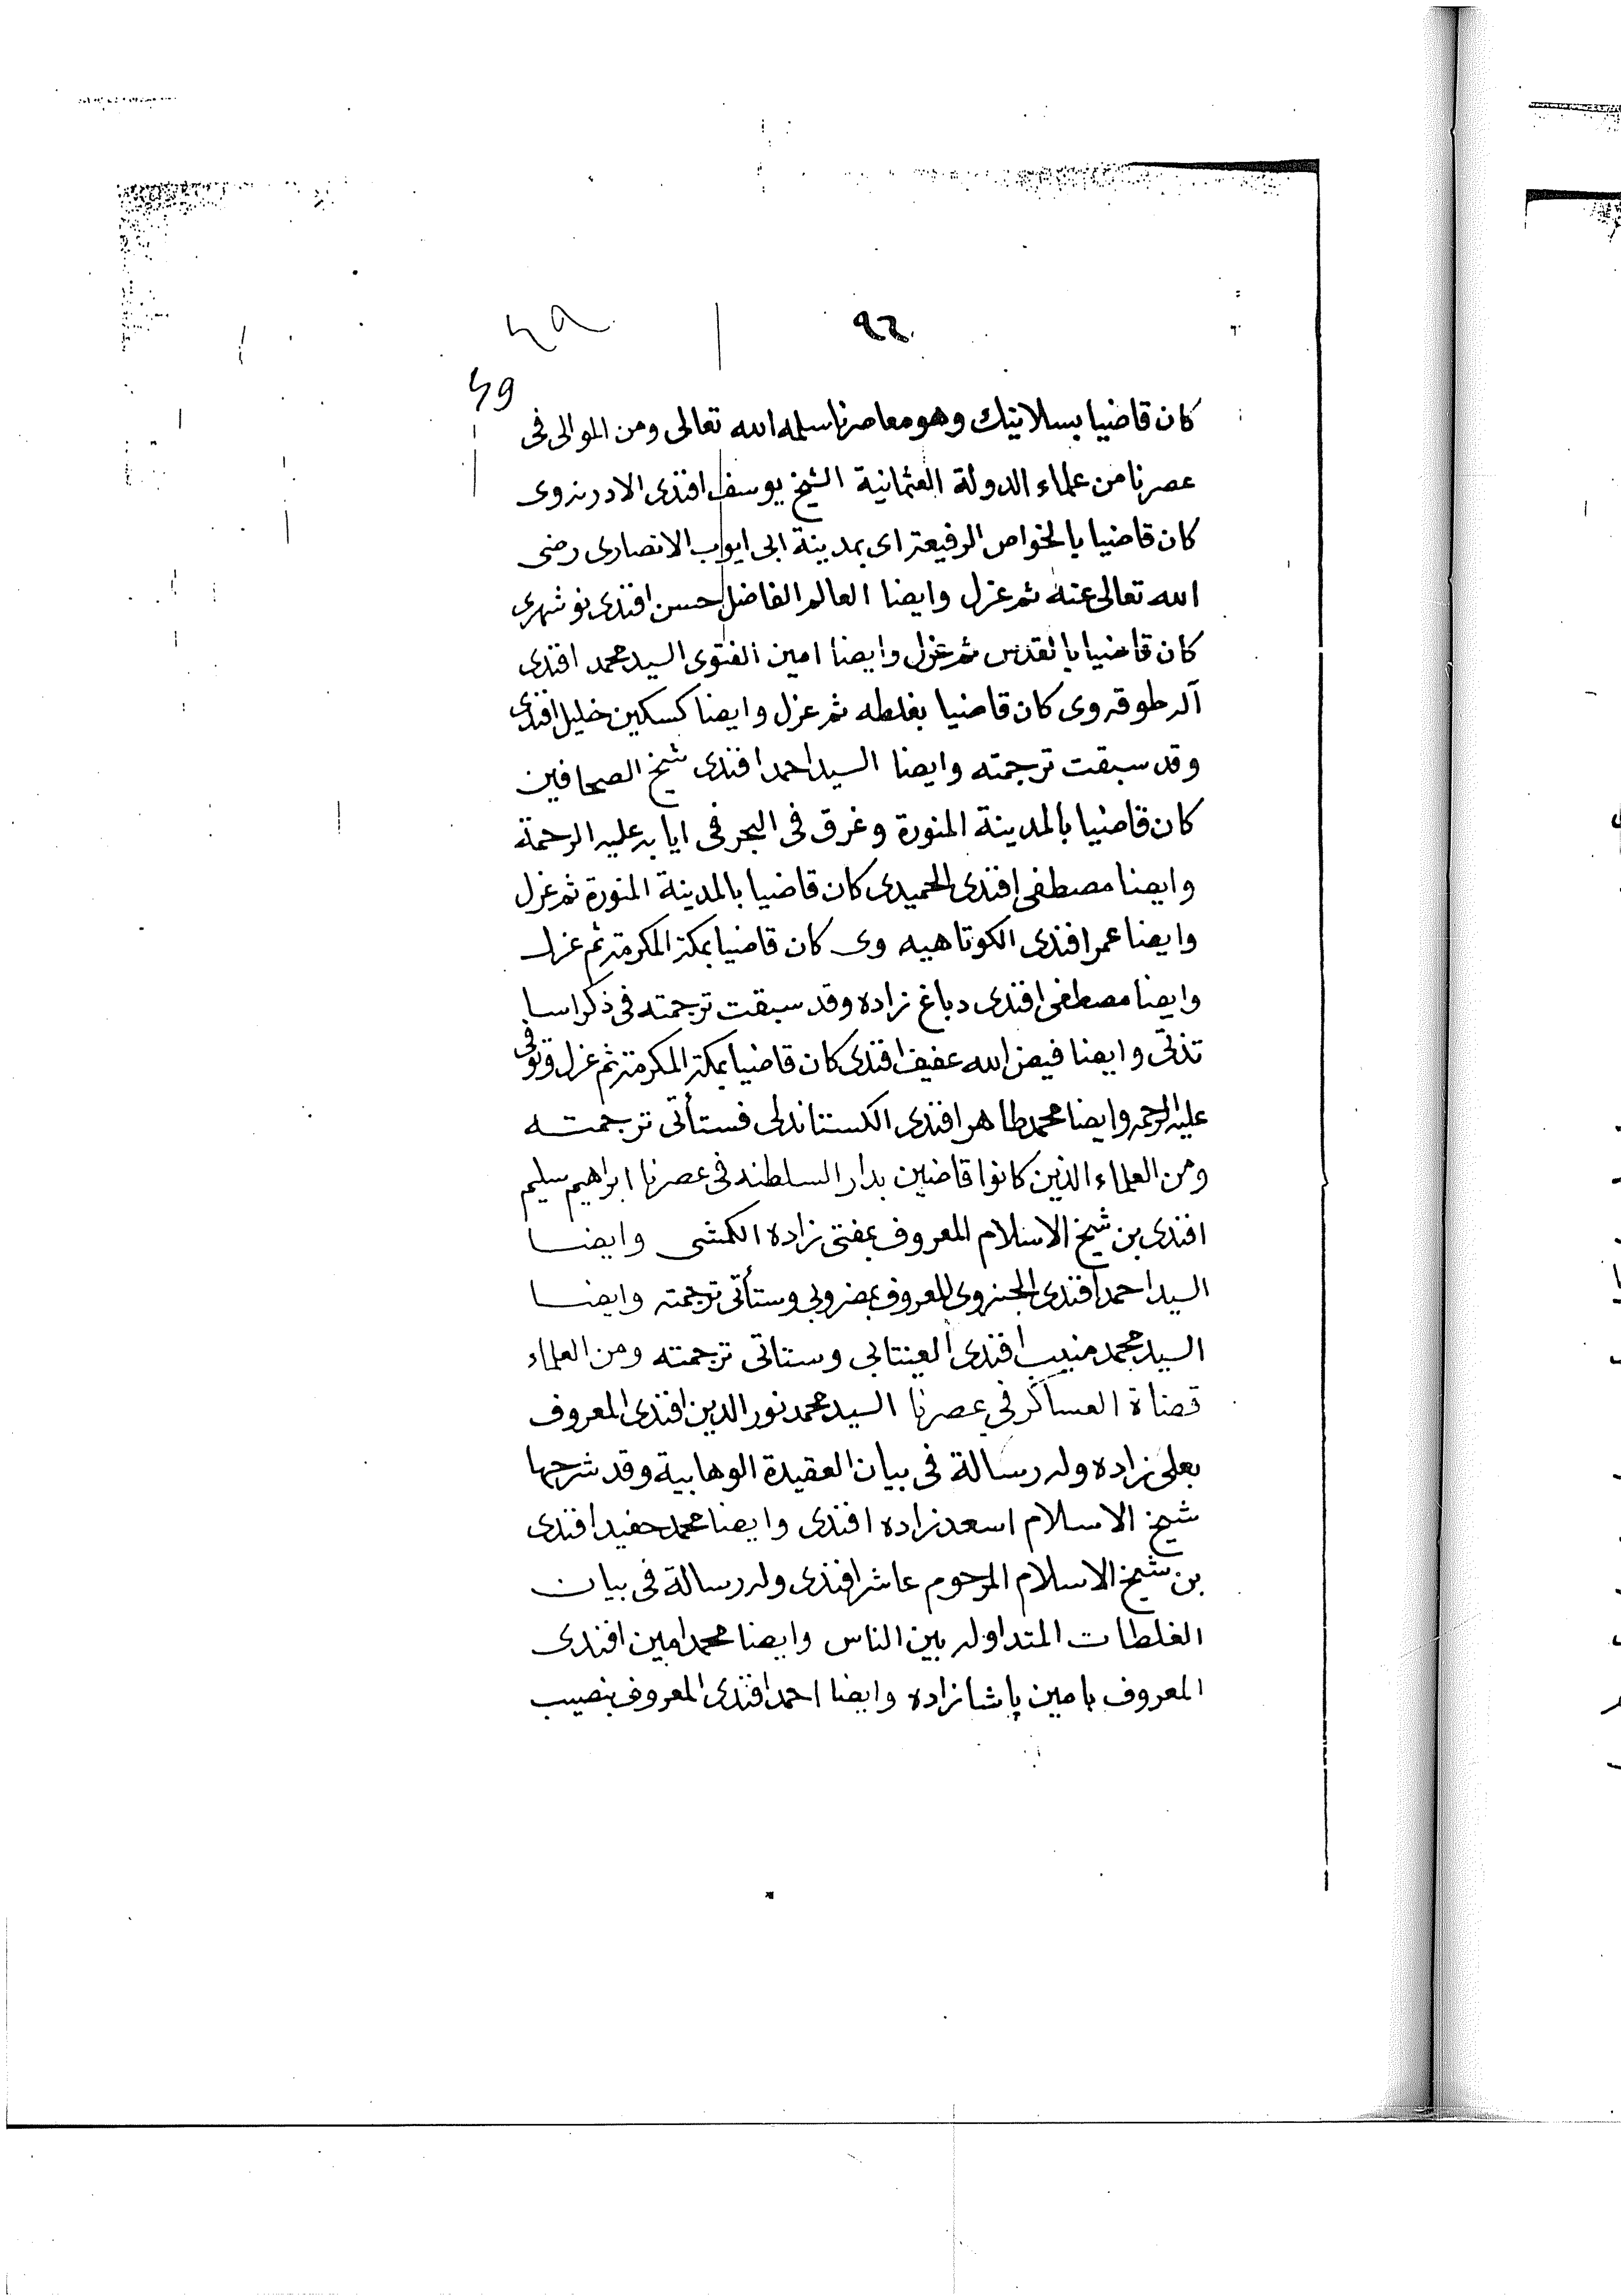 49
كان قاضيا بسلانيك وهو معاصرنا سلمه الله تعالى ومن الموالى فى
عصرنا من علماء الدولة العثمانية الشيخ يوسف افندى الادرنوى
كان قاضيا بالخواص الرفيعة اى بمدينة ابى ايوب الانصارى رضى
الله تعالى عنه ثم عزل وايضا العالم الفاضل حسن افندى نوشهرى
كان قاضيا بالقدس ثم عزل وايضا امين الفتوى السيد محمد افندى
آلد طوقروى كان قاضيا بغلطه ثم عزل وايضا كسكين خليل افندى
وقد سبقت ترجمته وايضا السيد احمد افندى شيخ الصحافين
كان قاضيا بالمدينة المنورة وغرق فى البحر فى ايابه عليه الرحمة
وايضا مصطفى افندى الحميدى كان قاضيا بالمدينة المنورة ثم عزل
وايضا عمر افندى الكوتاهيه وى كان قاضيا بمكة المكرمة ثم عزل
وايضا مصطفى افندى دباغ زاده وقد سبقت ترجمته فى ذكر اسا
تذتى وايضا فيض الله عفيف افندى كان قاضيا بمكة المكرمة ثم عزل وتوفى
عليه الرحمه وايضا محمد طاهر افندى الكستاندلى فستأتى ترجمته
ومن العلماء الذين كانوا قاضين بدار السلطنه فى عصرنا ابراهيم سليم
افندى بن شيخ الاسلام المعروف بمفتى زاده الكمشى وايضا
السيد احمد افندى الجنزوى المعروف بمضروبى وستأتى ترجمته وايضا
السيد محمد منيب افندى العينتابى وستاتى ترجمته ومن العلماء
قضاة العساكر فى عصرنا السيد محمد نور الدين افندى المعروف
بعلى زاده وله رسالة فى بيان العقيدة الوهابية وقد شرحها
شيخ الاسلام اسعد زاده افندى وايضا محمد حفيد افندى
بن شيخ الاسلام المرحوم عاشر افندى وله رسالة فى بيان
الغلطات المتداوله بين الناس وايضا محمد امين افندى
المعروف بامين پاشا زاده وايضا احمد افندى المعروف بنصيب